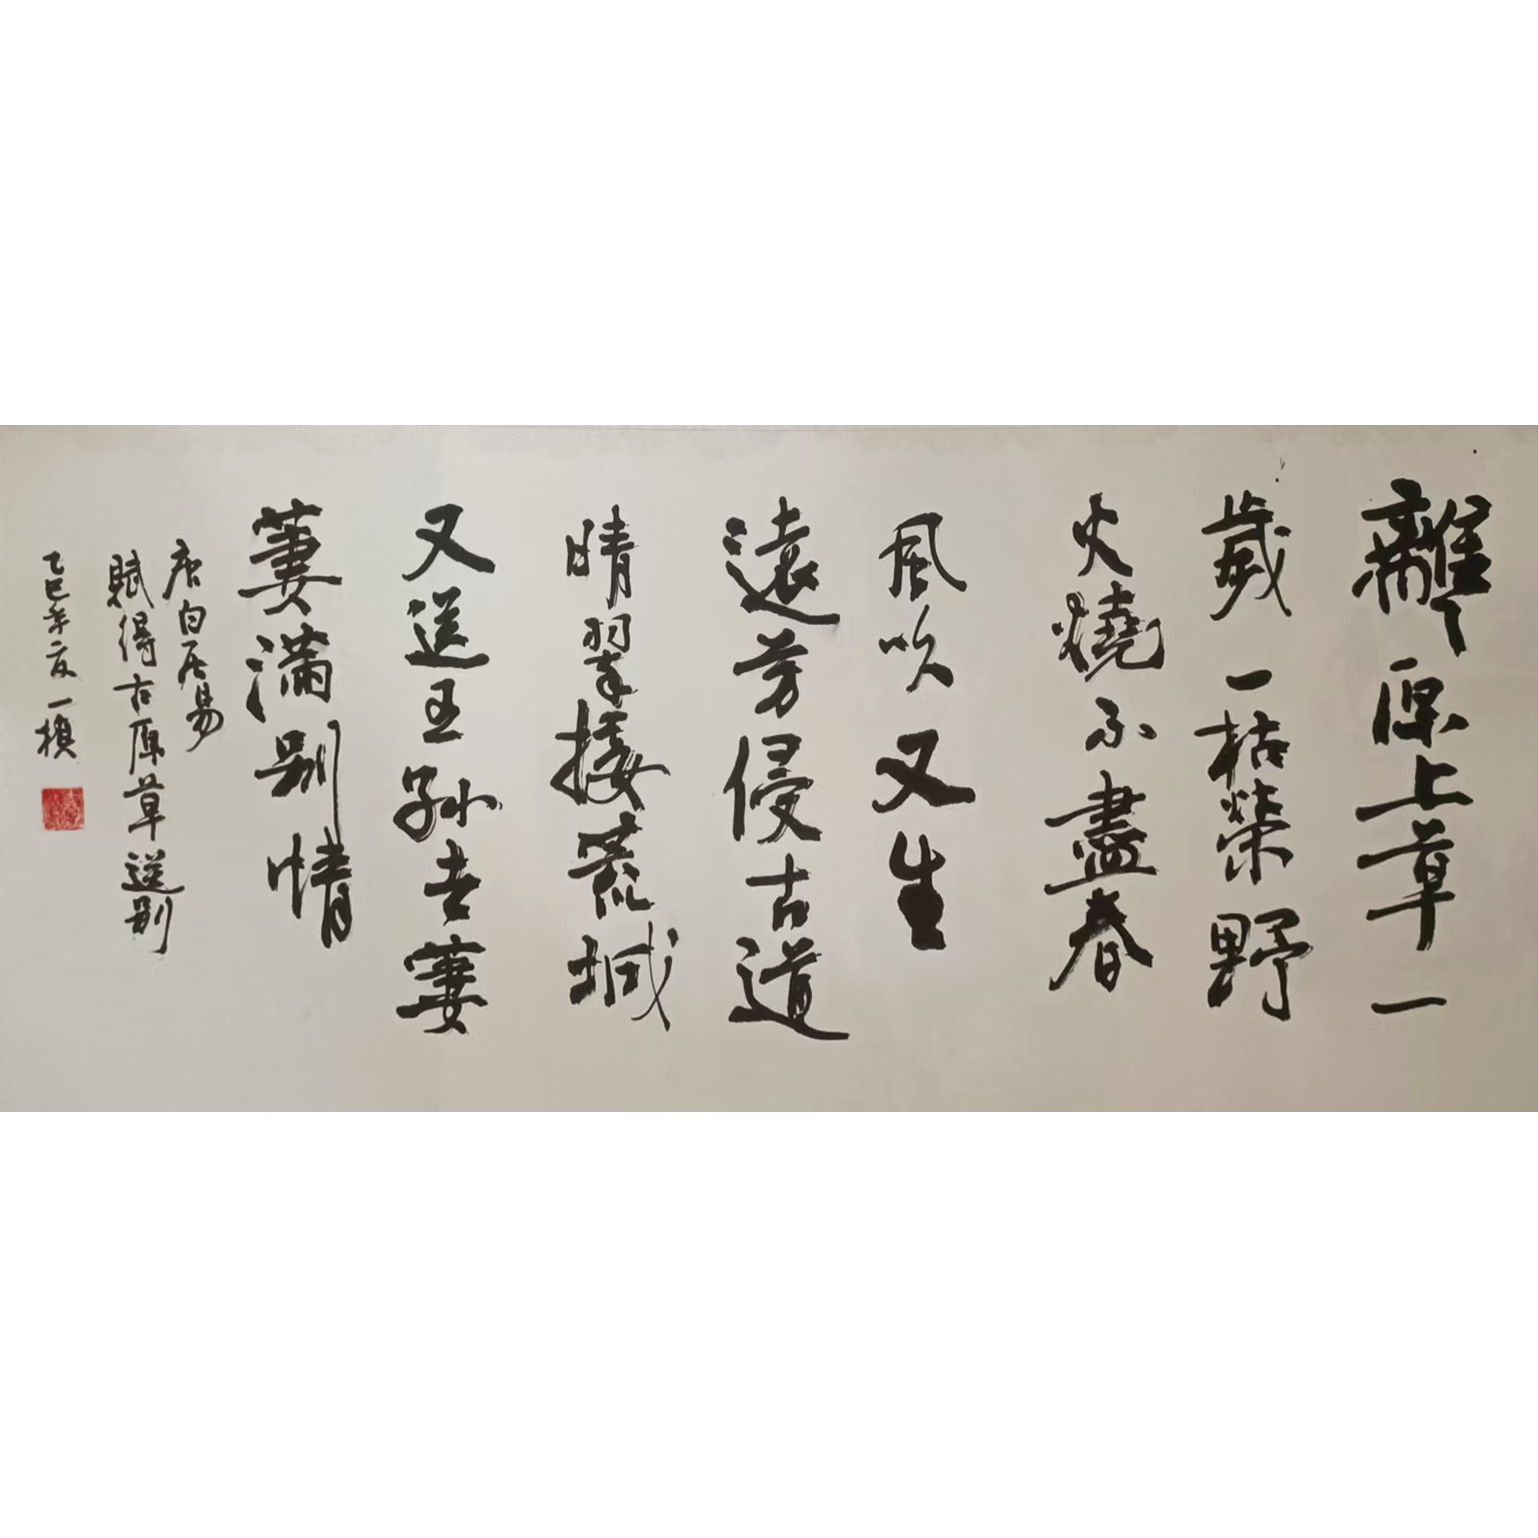 離〻原上草一
歲一枯榮野
火燒不盡春
風吹又生
遠芳侵古道
晴翠接荒城
又送王孫去萋
萋滿別情
唐白居易
賦得古原草送別
乙巳年夏一楨